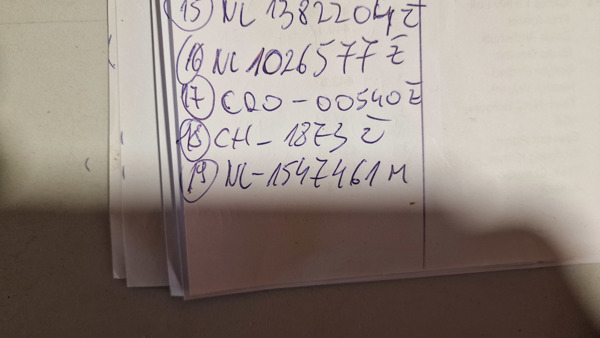 15 NL 1382204 Ż
16 NL 1026577 Ż
17 CDO-00540 Ż
18 CH-1873 Ż
19 NL-1547461 M